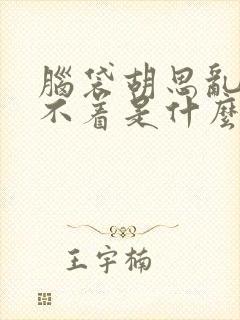 腦袋胡思亂
不着是什麼
王宇楠